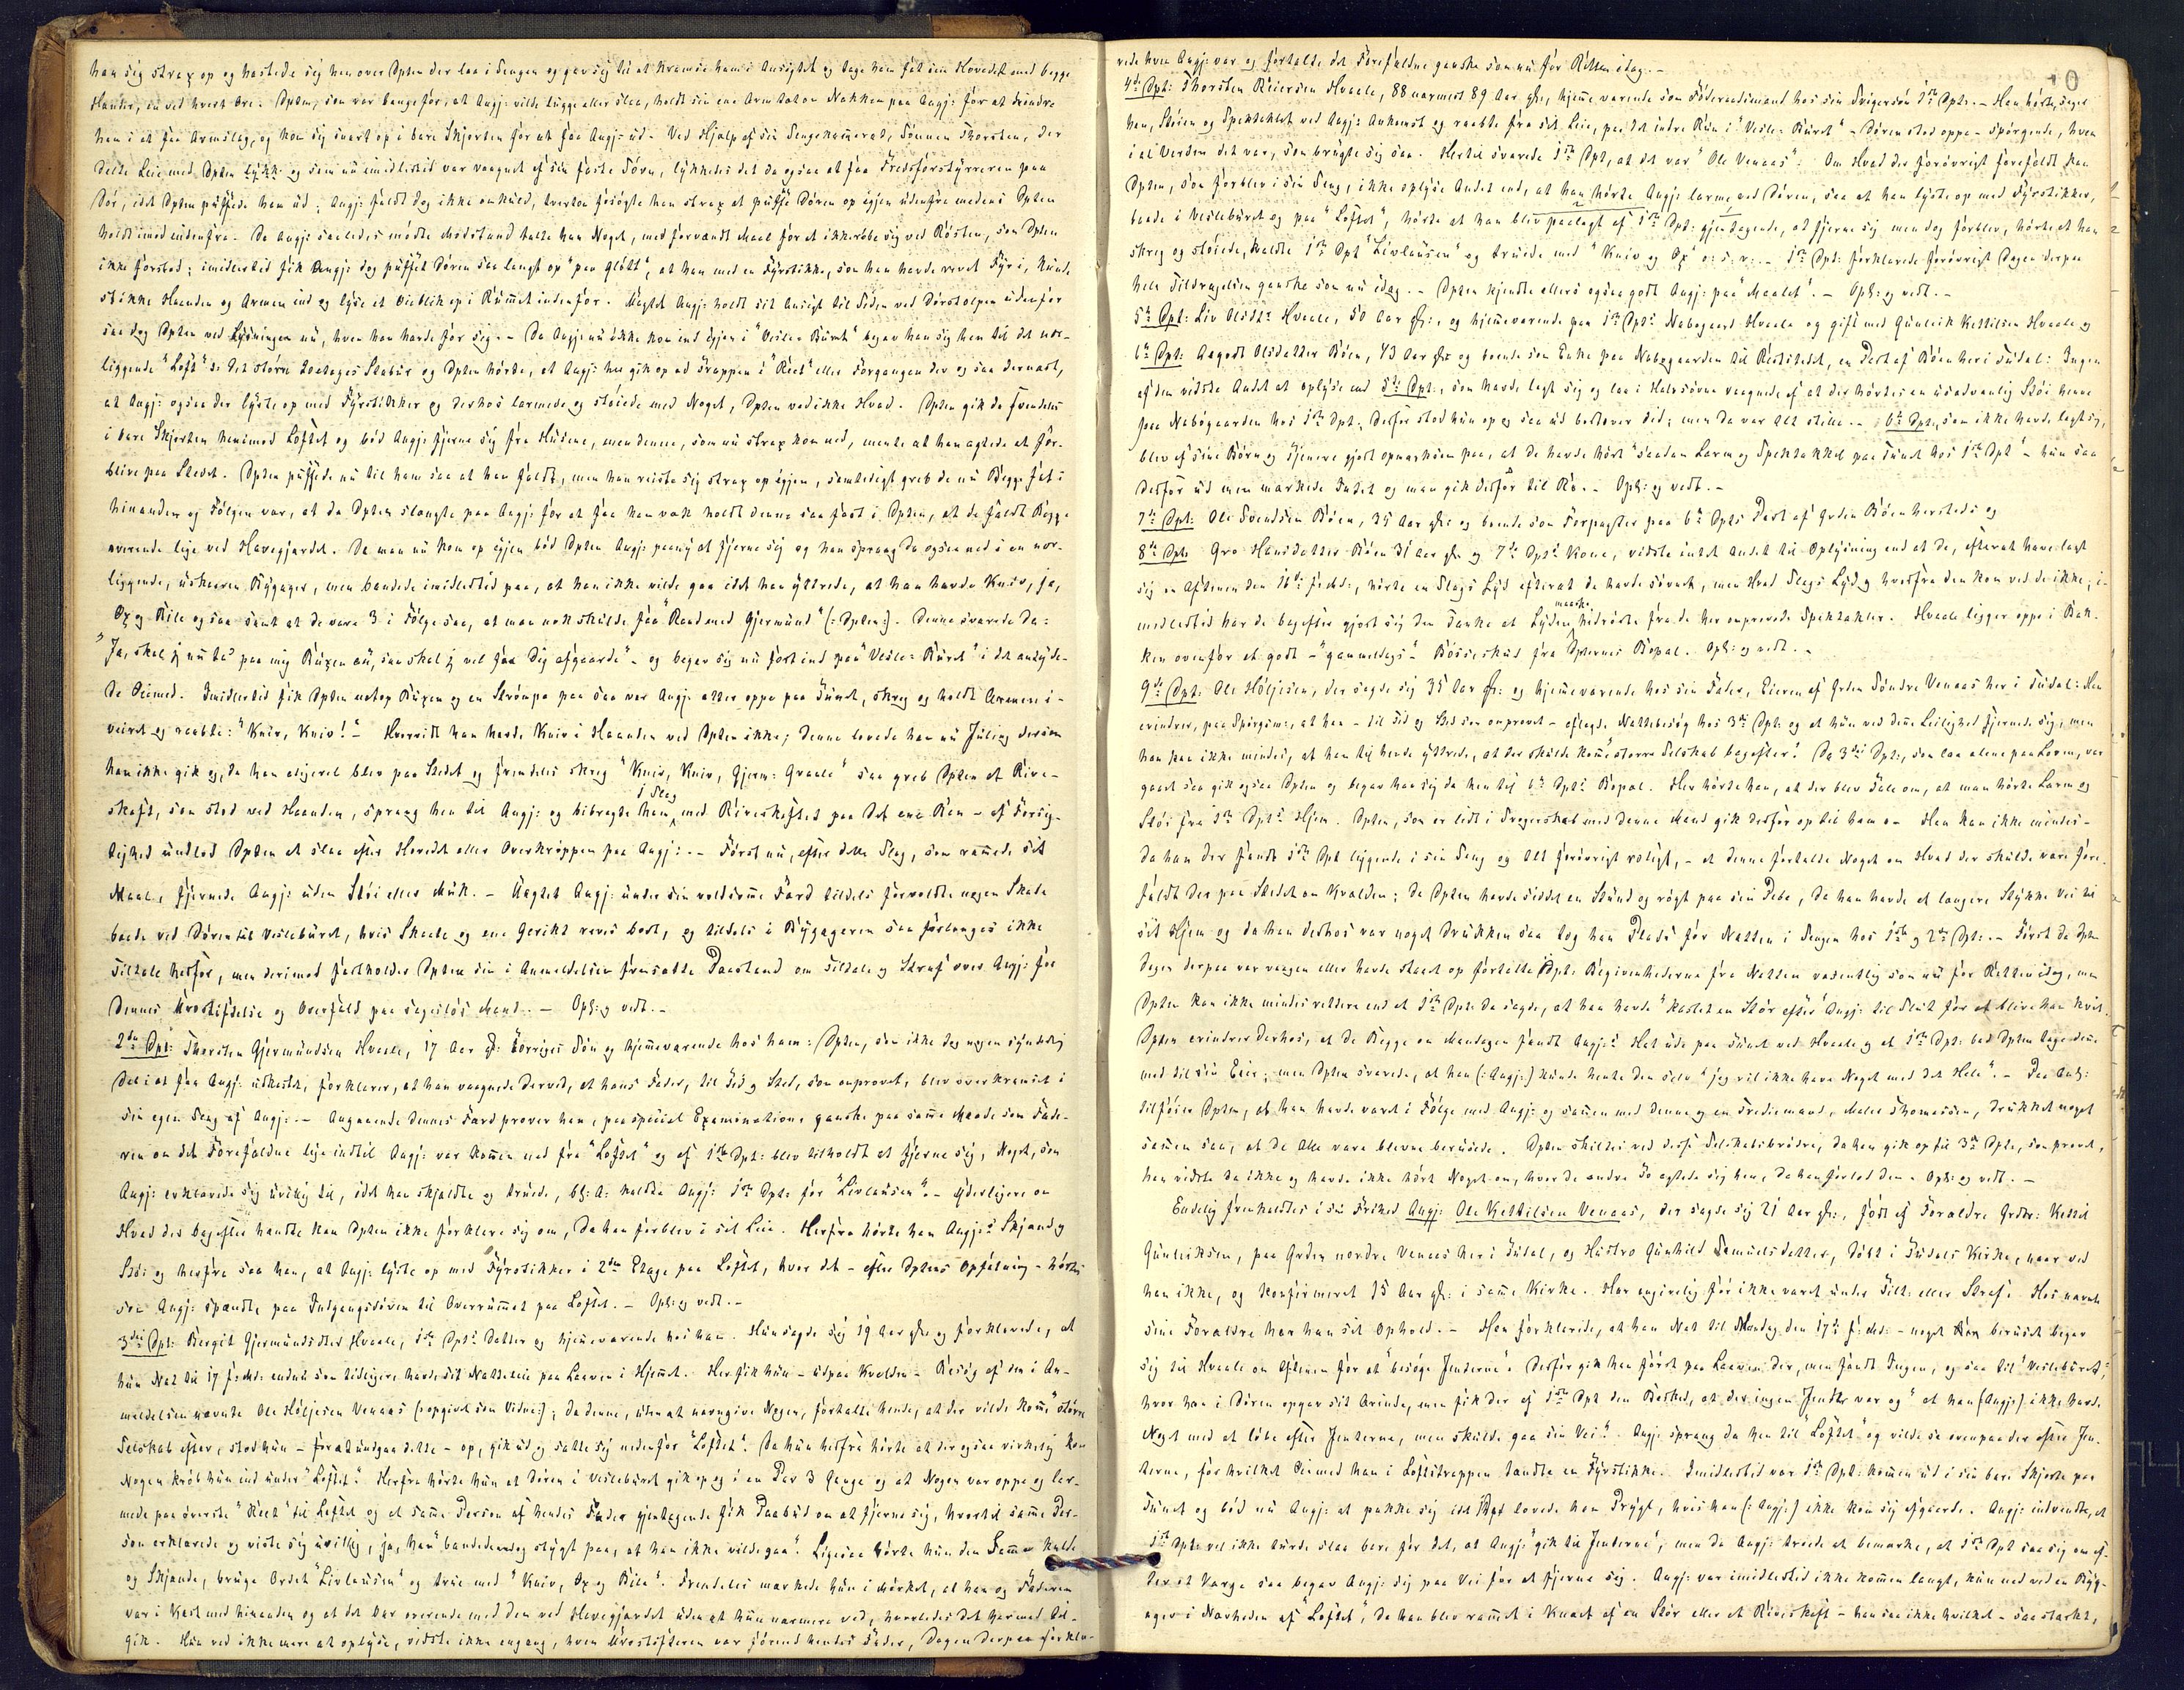 han sig strax op og hastede sig hen over Dpten der laa i Sengen og gav sig til at kramse ham i Ansigtet og tage ham fat om Hovedet med begge
Hænder, en ved hvert Øre. Dpten, som var bange for, at Angj: vilde bugge eller slaa, holdt sin ene Arm bag om Nakken paa Angj: for at hindre
ham i at faa Armslag, og kom sig snart op i bare Skjorten for at faa Angj: ud. Ved Hjælp af sin Sengekammerat, Sønnen Thorsten, der
delte Leie med Dpten og som nu imidlertid var vaagnet af sin faste Søvn, lykkedes det da ogsaa at faa Fredsforstyrreren paa
Dør, idet Dpten puffede ham ud; Angj: faldt dog ikke omkuld, hvorfor forsøgte han strax at puffe Døren op igjen udenfra medens Dpten
holdt imod indenfra. Da Angj: saaledes mødte Modstand talte han Noget, med forvendt Maal for at ikke røbe sig ved Røsten, som Dpten
ikke forstod; imidlertid fik Angj: dog puffet Døren saa langt op "paa Gløtt", at han med en Fyrstikke, som han havde revet Fyr i, kunde
stikke Haanden og Armen ind og lyse et Øieblik op i Rummet indenfor. Uagtet Angj: holdt sit Ansigt til Siden ved Dørstolpen udenfor
saa dog Dpten ved Lysningen nu, hvem han havde for sig. - Da Angj: nu ikke kom ind igjen i "Vesle-Buret" begav han sig hen til det nær-
liggende "Loft" ɔ: det større 2etages Stabur og Dpten hørte, at Angj: her gik op ad Trappen i "Rået" eller Forgangen der og saa dernæst,
at Angj: ogsaa der lyste op med Fyrstikker og derhos larmede og støiede med Noget, Dpten ved ikke Hvad. Dpten gik da fremdeles
i bare Skjorten henimod Loftet og bød Angj: fjerne sig fra Husene, men denne, som nu strax kom ned, mente at han agtede at for-
blive paa Stedet. Dpten puffede nu til ham saa at han faldt, men han reiste sig strax op igjen, samtidigt greb de nu Begge fat i
hinanden og Følgen var, at da Dpten slængte paa Angj: for at faa ham væk holdt denne saa fast i Dpten, at de faldt Begge
overende lige ved Havegjærdet. Da man nu kom op igjen bød Dpten Angj: paany at fjerne sig og han sprang da ogsaa ned i en nær-
liggende, uskaaren Bygager, men bandede imidlertid paa, at han ikke vilde gaa idet han yttrede, at han havde Kniv, ja,
Øx og Bile ogsaa samt at de vare 3 i Følge saa, at man nok skulde faa "Raad med Gjermund" (: Dpten :). Denne svarede da:
"Ja, skal jeg nu ta' paa mig Buxen au, saa skal jeg vel faa Dig afgaarde" - og begav sig nu først ind paa "Vesle-Buret" i det antyde-
de Øiemed. Imidlertid fik Dpten netop Buxen og en Strømpe paa saa var Angj: atter oppe paa Tunet, skreg og holdt Armene i-
veiret og raabte: "Kniv, Kniv!" - Hvorvidt han havde Kniv i Haanden ved Dpten ikke; denne lovede ham nu Juling dersom
han ikke gik og, da han alligevel blev paa Stedet og fremdeles skreg "Kniv, Kniv, Gjerm: Hvaale" saa greb Dpten et Rive-
skaft, som stod ved Haanden, sprang hen til Angj: og bibragte ham 1 Slag med Riveskaftet paa det ene Ben - af Forsig-
tighed undlod Dpten at slaa efter Hovedet eller Overkroppen paa Angj: - Først nu, efter dette Slag, som rammede sit
Maal, fjernede Angj: uden Støi eller Muk. - Uagtet Angj: under sin voldsomme Færd tildels forvoldte nogen Skade
baade ved Døren til Veslebüret, hvis Skaale og ene Gerikt reves bort, og tildels i Bygageren saa forlanges ikke
Tiltale herfor, men derimod fastholder Dpten sin i Anmeldelsen fremsatte Paastand om Tiltale og Straf over Angj: for
dennes Urostiftelse og Overfald paa sagesløs Mand. - Opl: og vedt. -
2den Dpt: Thorsten Gjermundsen Hvaale, 17 Aar gl: Forriges Søn og hjemmeværende hos ham: Dpten, som ikke tog nogen synderlig
Del i at faa Angj: udkastet, forklarer, at han vaagnede derved, at hans Fader, til Tid og Sted, som omprovet, blev overkramset i
sin egen Seng af Angj: - Angaaende dennes Færd prover han, paa speciel Examination, ganske paa samme Maade som Fade-
ren om det Forefaldne lige indtil Angj: var kommen ned fra "Loftet" og af 1ste Dpt: blev tilholdt at fjerne sig, Noget, som
Angj: erklærede sig uvillig til, idet han skjældte og truede, bl: A: kaldte Angj: 1ste Dpt: for "Livlausen". - Yderligere om
Hvad der bagefter hændte kan Dpten ikke forklare sig om, da han forblev i sit Leie. Herfra hørte han Angj:s Skjænd og
Støi og herfra saa han, at Angj: lyste op med Fyrstikker i 2den Etage paa Loftet, hvor det - efter Dptens Opfatning - hørtes
som Angj: spændte paa Indgangsdøren til Overrummet paa Loftet. - Opl: og vedt. -
3die Dpt: Bergit Gjermundsdtr Hvaale, 1ste Dpts Datter og hjemmeværende hos ham. Hun sagde sig 19 Aar gl: og forklarede, at
hun Nat til 17 f: Md: endnu som tidligere havde sit Natteleie paa Laaven i Hjemmet. Her fik hun - udpaa Kvelden - Besøg af den i An-
meldelsen nævnte Ole Høljesen Venaas (: opgivet som Vidne :); da denne, uden at navngive Nogen, fortalte hende, at der vilde komme større
Selskab efter, stod hun - for at undgaa dette - op, gik ud og satte sig nedenfor "Loftet". Da hun herfra hørte at der ogsaa virkelig kom
Nogen krøb hun ind under "Loftet". Herfra hørte hun at Døren i Veslebüret gik op og i en Par 3 Gange og at Nogen var oppe og lar-
mede paa øverste "Rået" til Loftet og at samme Person af hendes Fader gjentagende fik Paabud om at fjerne sig, hvortil samme Per-
son erklærede og viste sig uvillig, ja, han "bandede endog stygt paa, at han ikke vilde gaa". Ligesaa hørte hun den Samme kalde
og Skjænde, bruge Ordet "Livlausen" og true med "Kniv, Øx og Bile". Fremdeles mærkede hun i Mørket, at han og Faderen
var i Kast med hinanden og at det bar overende med dem ved Havegjærdet uden at hun nærmere ved, hvorledes det hermed til-
gik. Hun ved ikke mere at oplyse, vidste ikke engang, hvem Urostifteren var førend hendes Fader, Dagen derpaa forkla-
rede hvem Angj: var og fortalte det Forefaldne ganske som nu for Retten idag. -
4de Dpt: Thorsten Reiersen Hvaale, 88 nærmest 89 Aar gl:, hjemmeværende som Føderaadsmand hos sin Svigersøn 1ste Dpt: - Han hørte, sagde
han, Støien og Spektaklet ved Angj:s Ankomst og raabte fra sit Leie, paa det indre Rum i "Vesle-Buret" - Døren stod oppe - spørgende, hvem
i al Verden det var, som brugte sig saa. Hertil svarede 1ste Dpt, at det var "Ole Venaas". Om Hvad der forøvrigt forefaldt kan
Dpten, som forblev i sin Seng, ikke oplyse Andet end, at han hørte Angj: larme ved Døren, saa at han lyste op med Fyrstikker,
baade i Veslebüret og paa "Loftet", hørte at han blev paalagt af 1ste Dpt: gjentagende, at fjerne sig men dog forblev, hørte at han
skreg og støiede, kaldte 1ste Dpt "Livlausen" og truede med "Kniv og Øx" o: s: v: - 1ste Dpt: forklarede forøvrigt Dagen derpaa
hele Tildragelsen ganske som nu idag. - Dpten kjendte ellers ogsaa godt Angj: paa "Maalet". - Opl: og vedt. -
5te Dpt: Liv Olsdtr Hvaale, 50 Aar gl:, og hjemmeværende paa 1ste Dpts Nabogaard Hvaale og gift med Gunleik Kettilsen Hvaale og
6te Dpt: Aagodt Olsdatter Bøen, 43 Aar gl: og boende som Enke paa Nabogaarden til Retstedet, en Part af Bøen her i Tudal: Ingen
af dem vidste Andet at oplyse end 5te Dpt:, som havde lagt sig og laa i Halvsøvne vaagnede af at der hørtes en usædvanlig Støi henne
paa Nabogaarden hos 1ste Dpt., derfor stod hun op og saa ud bortover did; men da var Alt stille. - 6te Dpt, som ikke havde lagt sig,
blev af sine Børn og Tjenere gjort opmærksom paa, at de havde hørt "saadan Larm og Spektakkel paa Tunet hos 1ste Dpt" - hun saa
derfor ud men mærkede Intet og man gik derfor til Ro. - Opl: og vedt. -
7de Dpt: Ole Svendsen Bøen, 35 Aar gl: og boende som Forpagter paa 6te Dpts Part af Grden Bøen hersteds og
8de Dpt: Gro Hansdatter Bøen 31 Aar gl: og 7de Dpts Kone, vidste intet Andet til Oplysning end at de, efterat have lagt
sig om Aftenen den 16de f: Md:, hørte en Slags Lyd efterat de havde sovnet, men Hvad Slags Lyd og hvorfra den kom ved de ikke; i-
midlertid har de bagefter gjort sig den Tanke at Lyden maaske hidrørte fra de her omprovede Spektakler. Hvaale ligger oppe i Bak-
ken ovenfor et godt - "gammeldags" - Bøsseskud fra Dpternes Bopæl. Opl: og vedt. -
9de Dpt: Ole Høljesen, der sagde sig 35 Aar gl: og hjemmeværende hos sin Fader, Eieren af Grden Søndre Venaas her i Tudal: Han
erindrer, paa Spørgsm:, at han - til Tid og Sted som omprovet - aflagde Nattebesøg hos 3die Dpt: og at hun ved denne Leilighed fjernede sig; men
han kan ikke mindes, at han til hende yttrede, at der skulde komme "større Selskab bagefter". Da 3die Dpt:, som laa alene paa Laaven, var
gaaet saa gik ogsaa Dpten og begav han sig da hen til 6te Dpts Bopæl. Her hørte han, at der blev Tale om, at man hørte Larm og
Støi fra 1ste Dpts Hjem. Dpten, som er lidt i Svogerskab med denne Mand gik derfor op til ham. - Han kan ikke mindes -
da han der fandt 1ste Dpt liggende i sin Seng og Alt forøvrigt roligt, - at denne fortalte Noget om Hvad der skulde være fore-
faldt der paa Stedet om Kvælden; da Dpten havde siddet en Stund og røgt paa sin Pibe, da han havde et længere Stykke Vei til
sit Hjem og da han derhos var noget drukken saa tog han Plads for Natten i Sengen hos 1ste og 2den Dpt: - Først da Dpten
Dagen derpaa var vaagen eller havde staaet op fortalte Dpt: Begivenhederne fra Natten væsentlig som nu for Retten idag, men
Dpten kan ikke mindes rettere end at 1ste Dpt: da sagde, at han havde "kastet en Stør efter" Angj: til Slut for at blive ham kvit.
Dpten erindrer derhos, at de Begge om Mandagen fandt Angj:s Hat ude paa Tunet ved Hvaale og at 1ste Dpt: bad Dpten tage denne
med til sin Eier; men Dpten svarede, at han (: Angj:) kunde hente den selv "jeg vil ikke have Noget med det Hele". - Paa Anl:
tilføier Dpten, at han havde været i Følge med Angj: og sammen med denne og en Trediemand, Maler Thomassen, drukket noget
sammen saa, at de Alle vare blevne berusede. Dpten skiltes ved disse Selskabsbrødre, da han gik op til 3die Dpt:, som provet,
han vidste da ikke og havde ikke hørt Noget om, hvor de andre To agtede sig hen, da han forlod dem. Opl: og vedt. -
Endelig fremkaldtes i sin Frihed Angj: Ole Kettilsen Venaas, der sagde sig 21 Aar gl:, født af Forældre Grdbr: Kettil
Gunleiksen, paa Grden nordre Venaas her i Tudal, og Hustro Gunhild Samuelsdatter, døbt i Tudals Kirke, naar ved
han ikke, og konfirmeret 15 Aar gl: i samme Kirke. Har angivelig før ikke været under Tilt: eller Straf. Hos nævnte
sine Forældre har han sit Ophold. - Han forklarede, at han Nat til Mandag den 17de f: Md: - noget beruset begav
sig til Hvaale om Aftenen for at "besøge Jenterne". Derfor gik han først paa Laaven der, men fandt Ingen, og saa til "Veslebüret",
hvor han i Døren opgav sit Ærinde, men fik der af 1ste Dpt den Besked, at der ingen Jenter var og "at han (Angj:) ikke havde
Noget med at løbe efter Jenterne, men skulde gaa sin Vei". Angj: sprang da hen til "Loftet" og vilde se ovenpaa der efter Jen-
terne, for hvilket Øiemed han i Loftstrappen tændte en Fyrstikke. Imidlertid var 1ste Dpt: kommen ud i sin bare Skjorte paa
Tunet og bød nu Angj: at pakke sig idet Dpt lovede ham Prygl, hvis han (: Angj:) ikke kom sig afgaarde. Angj: indvendte, at
1ste Dpt: vel ikke turde slaa bare for det, at Angj: "gik til Jenterne", men da Angj: troede at bemærke, at 1ste Dpt saa sig om ef-
ter et Værge saa begav Angj: sig paa Vei for at fjerne sig. Angj: var imidlertid ikke kommen langt, kun ned ved en Byg-
ager i Nærheden af "Loftet", da han blev rammet i Knæet af en Stør eller et Riveskaft - han saa ikke hvilket - saa stærkt,